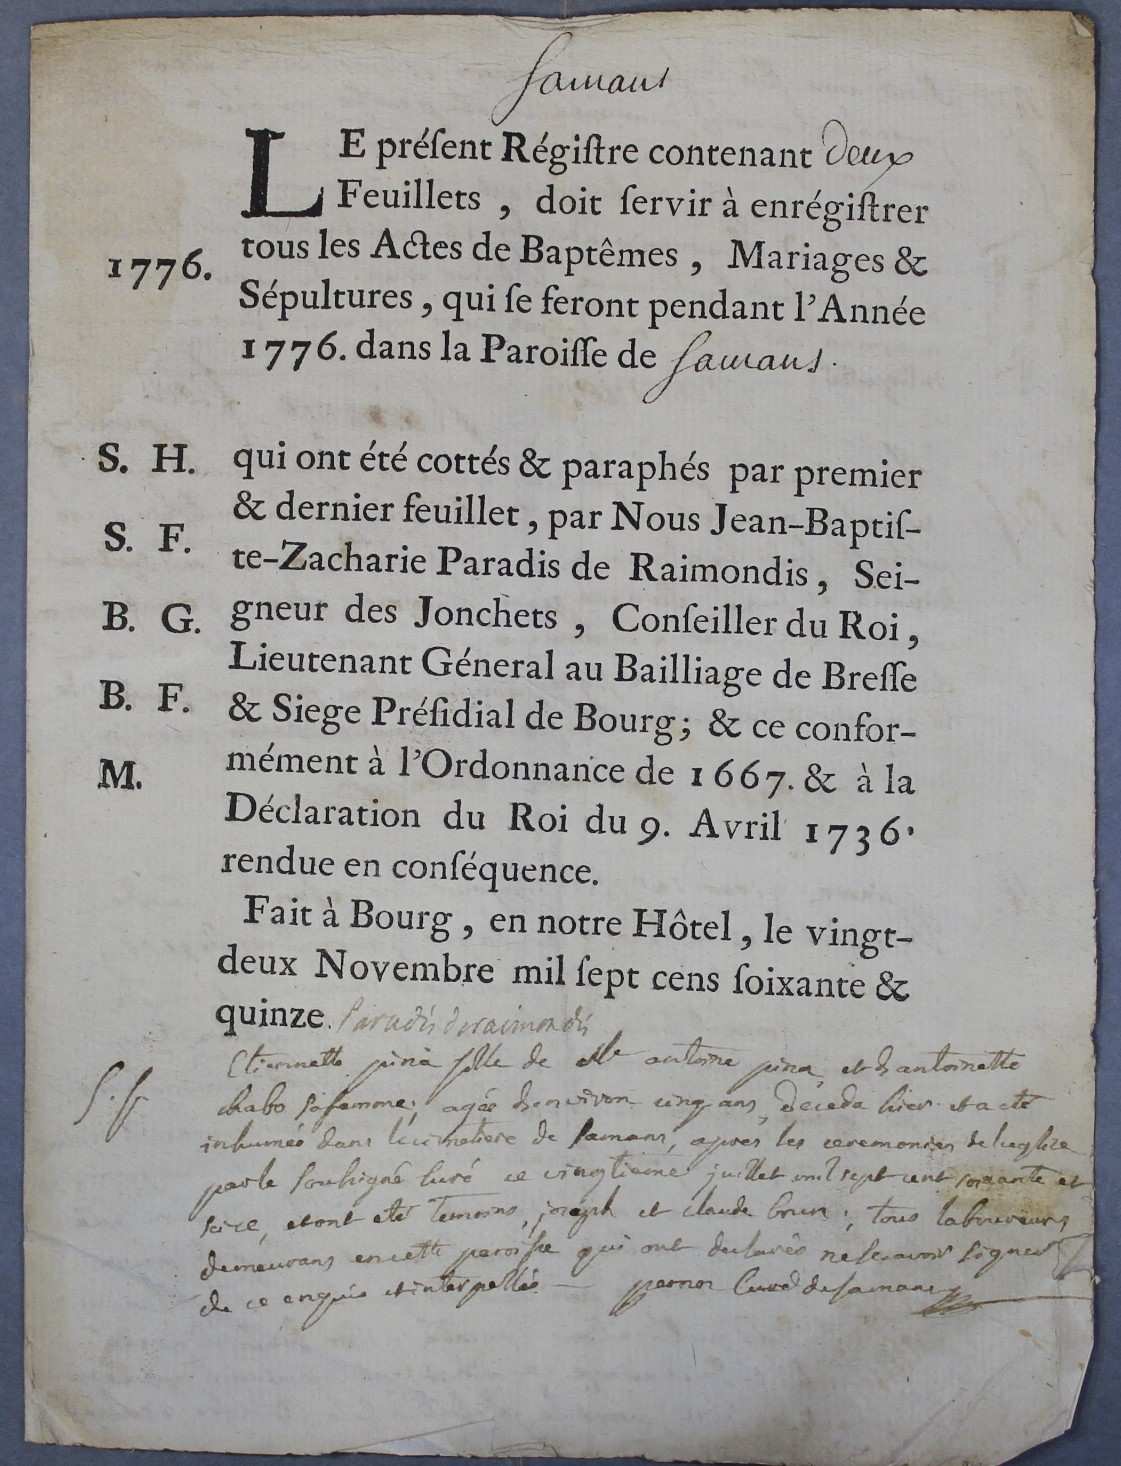 Samans
LE préſent Régiſtre contenant deux
Feuillets, doit ſervir à enrégiſtrer
tous les Actes de Baptêmes, Mariages &
1776.
Sépultures, qui ſe feront pendant l'Année
1776. dans la Paroiſſe de Samans.
S. H.
qui ont été cottés & paraphés par premier
& dernier feuillet, par Nous Jean-Baptiſ-
S. F.
te-Zacharie Paradis de Raimondis, Sei-
B. G.
gneur des Jonchets, Conſeiller du Roi,
Lieutenant Géneral au Bailliage de Breſſe
B. F.
& Siege Préſidial de Bourg; & ce confor-
M.
mément à l'Ordonnance de 1667. & à la
Déclaration du Roi du 9. Avril 1736.
rendue en conſéquence.
Fait à Bourg, en notre Hôtel, le vingt-
deux Novembre mil ſept cens ſoixante &
quinze. Paradis deraimondis
S. f.
Etiennette pina fille de antoine pina, et d'antoinette
chabo sa femme, agée denviron cinq ans, deceda hier et a eté
inhumée dans le cimetiere de Samans, apres les ceremonies de l'eglise
par le Soussigné Curé ce vingtieme juillet mil sept cent soixante et
seize, et ont eté temoins, joseph et claude brun, tous laboureurs
demeurans en cette paroisse qui ont declarés ne scavoir signer
de ce enquis et interpellés pernon Curé de samans